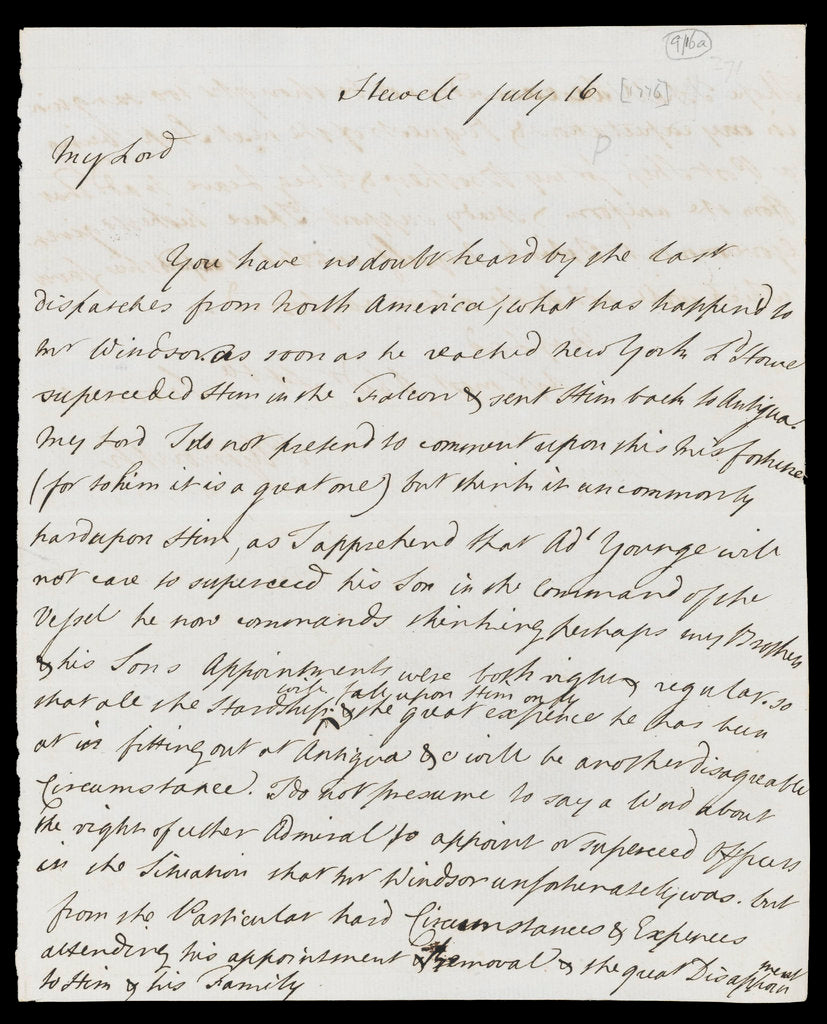 9/16a
Hewell July 16 [1776]
P
My Lord
You have no doubt heard by the last
dispatches from North America, what has happen'd to
Mr Windsor. as soon as he reached New York Ld Howe
superceeded Him in the Falcon & sent Him back to Antigua.
My Lord I do not pretend to comment upon this Misfortune
(for to him it is a great one) but think it uncommonly
hard upon Him, as I apprehend that Adl Younge will
not care to superceed his Son in the Command of the
Vessel he now commands thinking perhaps my Brothers
& his Sons Appointments were both right & regular. so
that all the Hardship will fall upon Him only & the great expence he has been
at in fitting out at Antigua &c will be another disagreable
Circumstance. I do not presume to say a Word about
the right of either Admiral to appoint or superceed Officers
in the Situation that Mr Windsor unfortunately was. but
from the Particular hard Circumstances & Expences
attending his appointment & removal & the great Disappointment
to Him & his Family